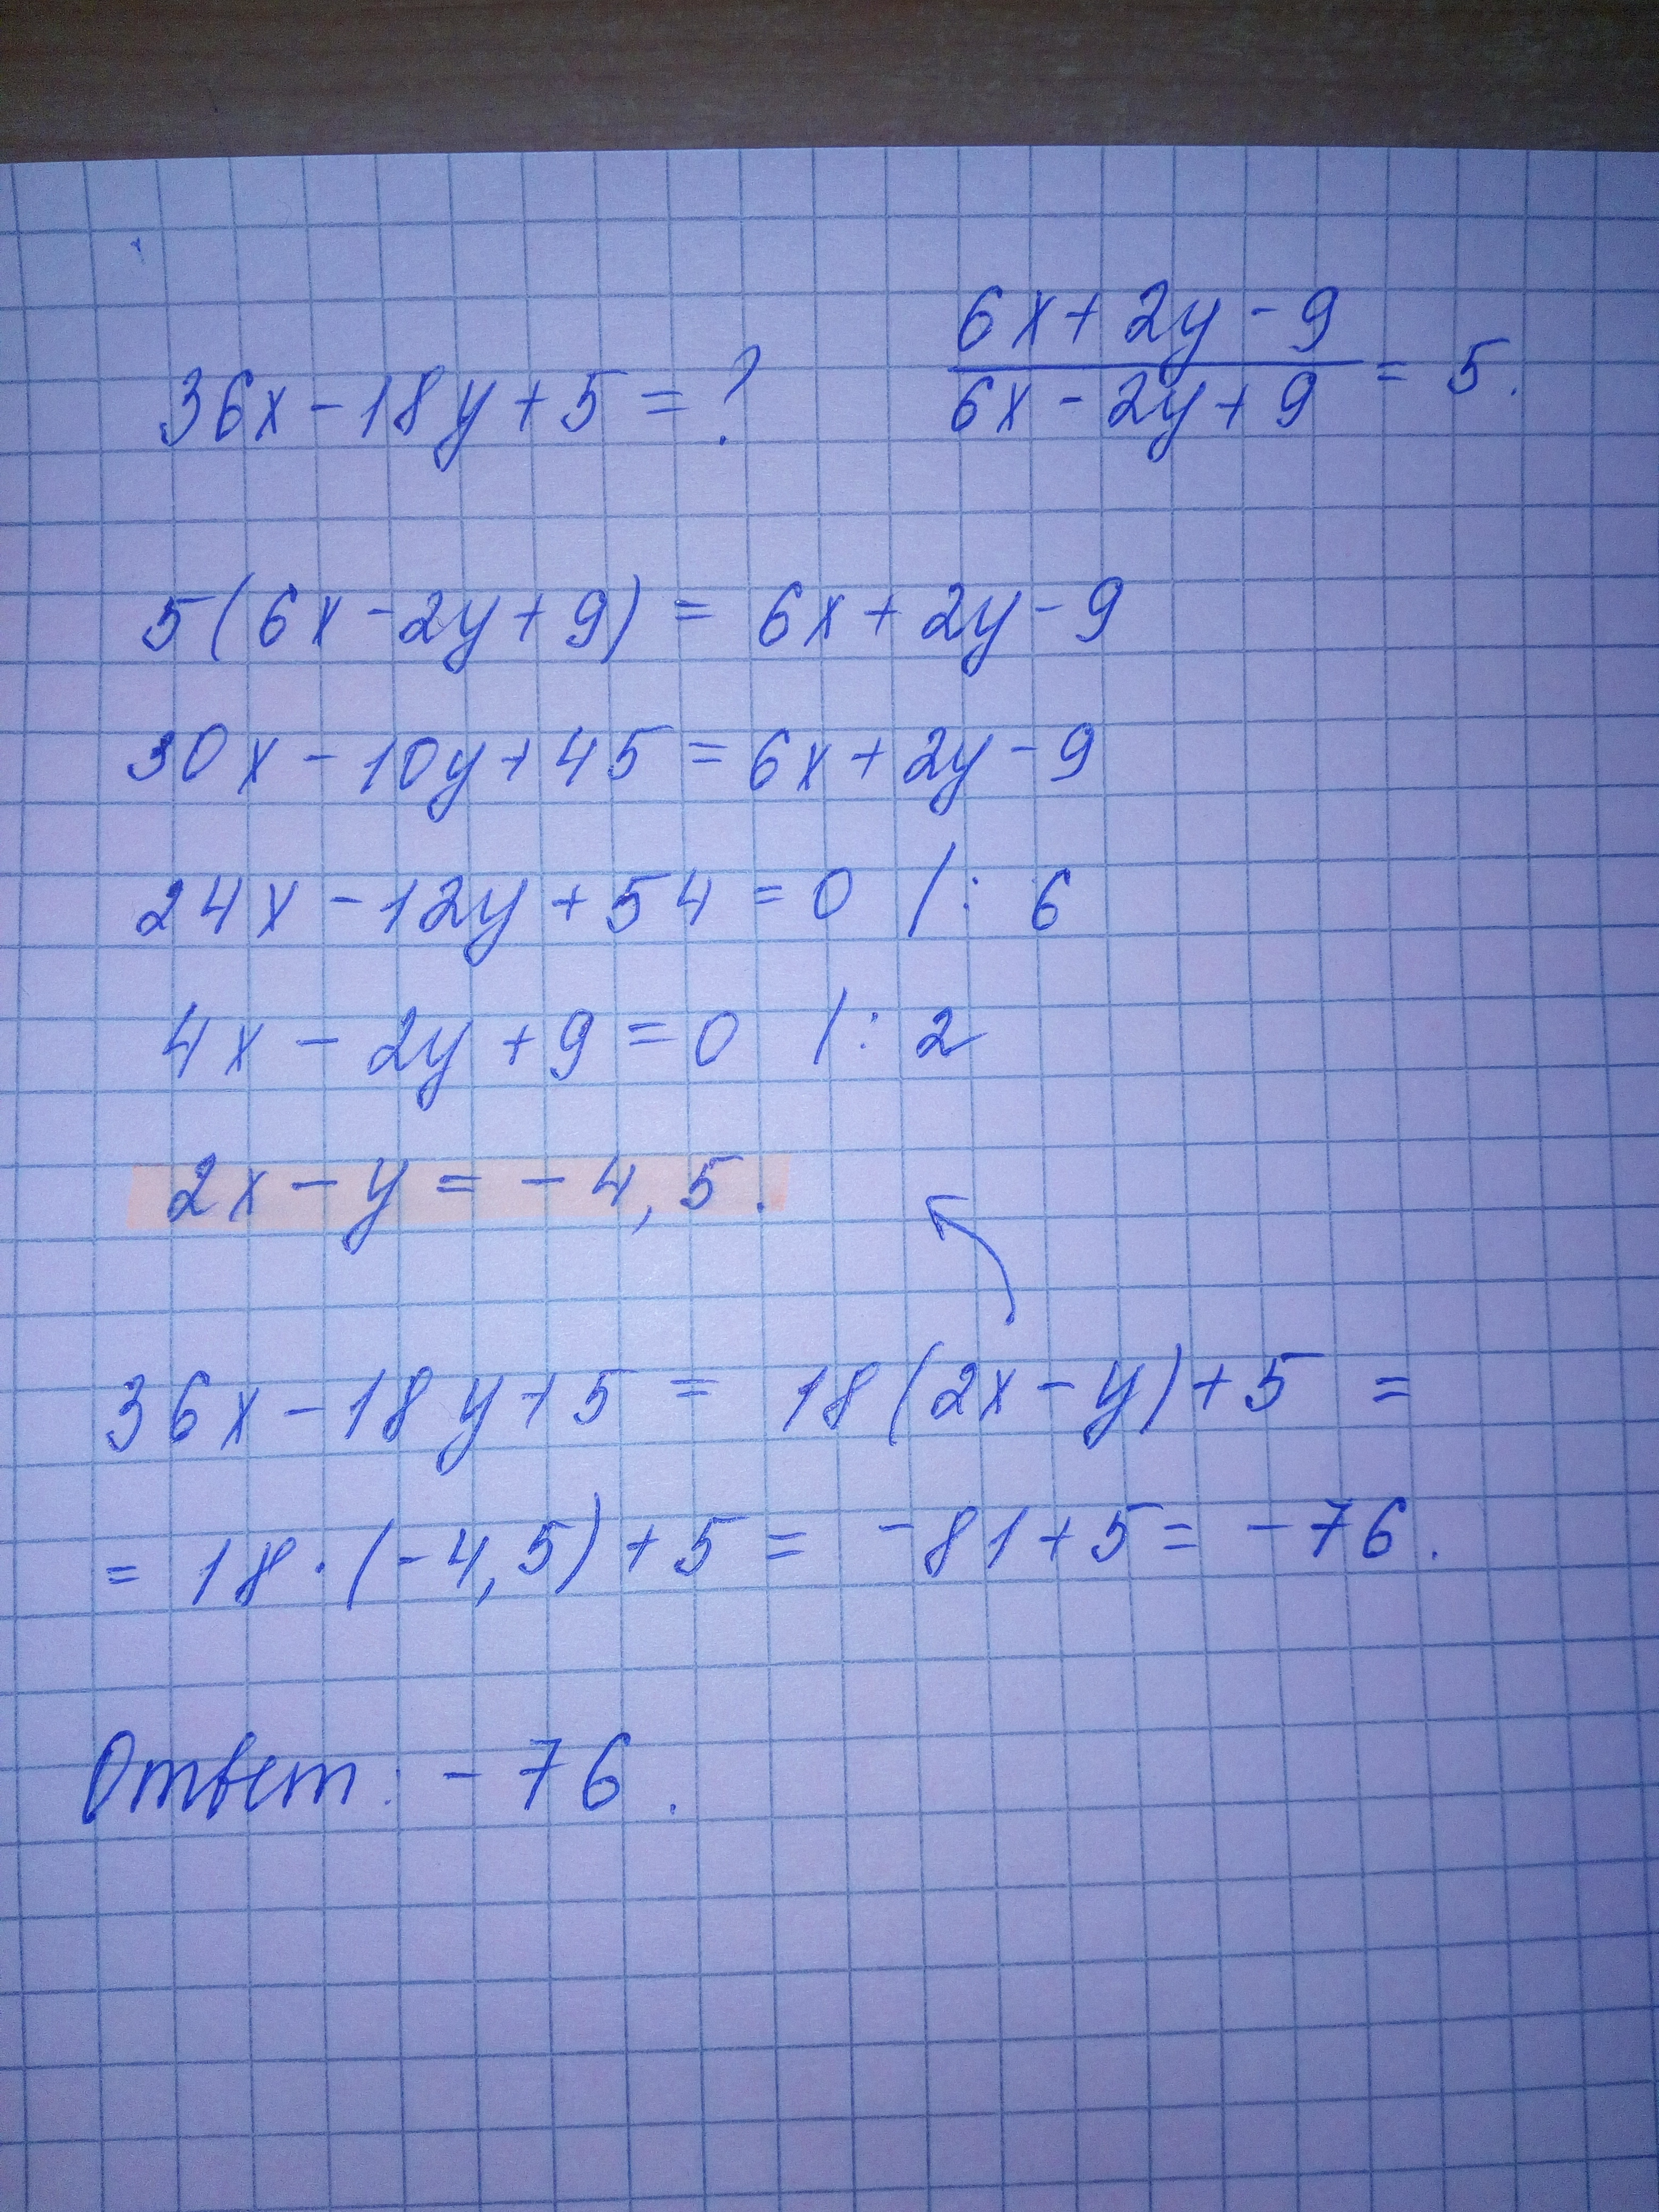 36x - 18y + 5 = ? (6x + 2y - 9)/(6x - 2y + 9) = 5.
5(6x - 2y + 9) = 6x + 2y - 9
30x - 10y + 45 = 6x + 2y - 9
24x - 12y + 54 = 0 /: 6
4x - 2y + 9 = 0 /: 2
2x - y = - 4,5.
36x - 18y + 5 = 18(2x - y) + 5 =
= 18 · (-4,5) + 5 = -81 + 5 = -76.
Ответ: -76.